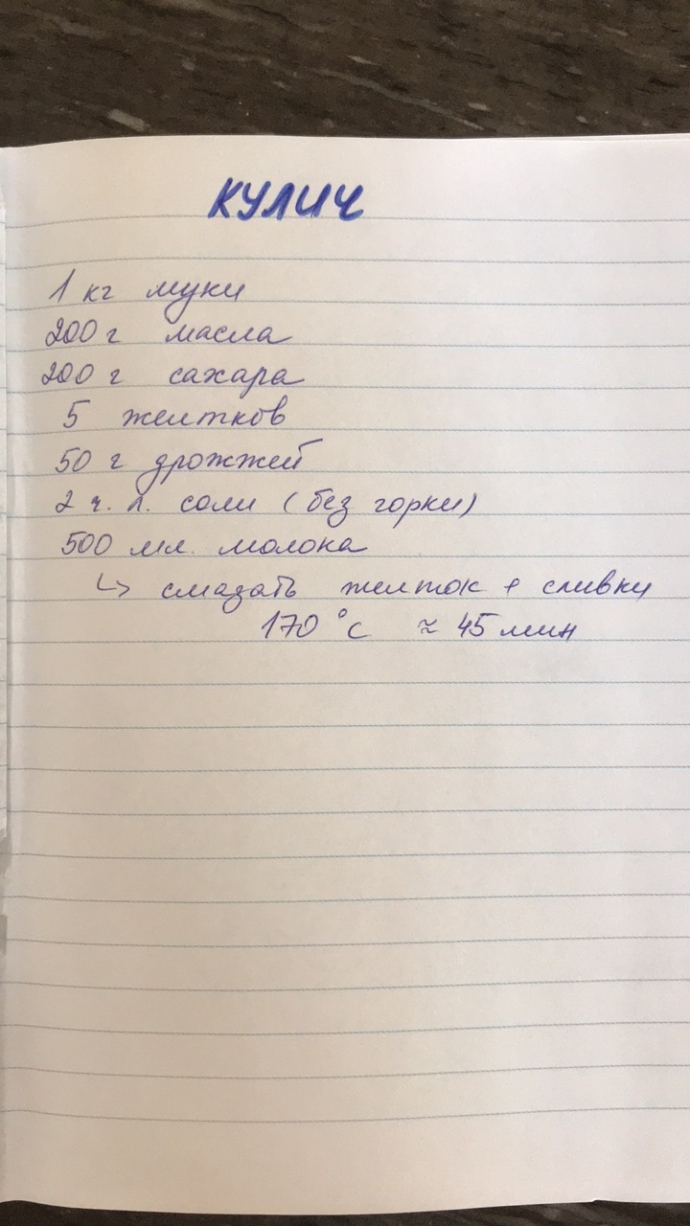 КУЛИЧ
1 кг муки
200 г масла
200 г сахара
5 желтков
50 г дрожжей
2 ч. л. соли (без горки)
500 мл. молока
↳ смазать желток + сливки
170 °С ≈ 45 мин